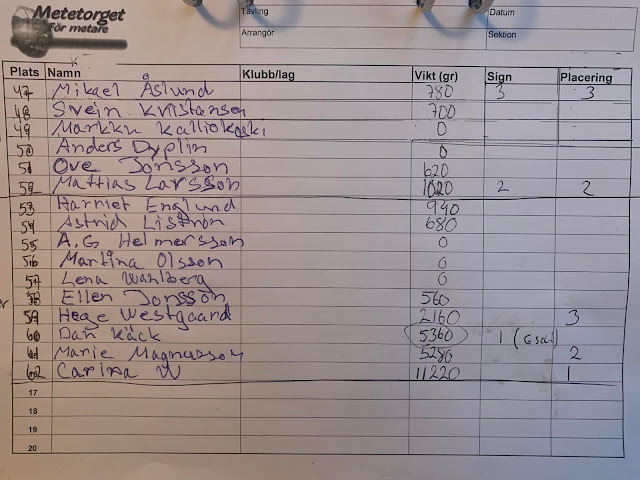 Metetorget
för metare
Tävling
Datum
Arrangör
Sektion
Plats Namn Klubb/lag Vikt (gr) Sign Placering
47 Mikael Åslund 780 3 3
48 Svein Kristansen 700
49 Markku Kalliokoski 0
50 Anders Dyplin 0
51 Ove Jonsson 620
52 Mattias Larsson 1020 2 2
53 Harriet Englund 940
54 Astrid Liström 680
55 A.G Helmersson 0
56 Martina Olsson 0
57 Lena Wahlberg 0
58 Ellen Jonsson 560
59 Hege Westgaard 2160 3
60 Dan Käck 5360 1
61 Marie Magnusson 5280 2
62 Carina W 11220 1
17
18
19
20